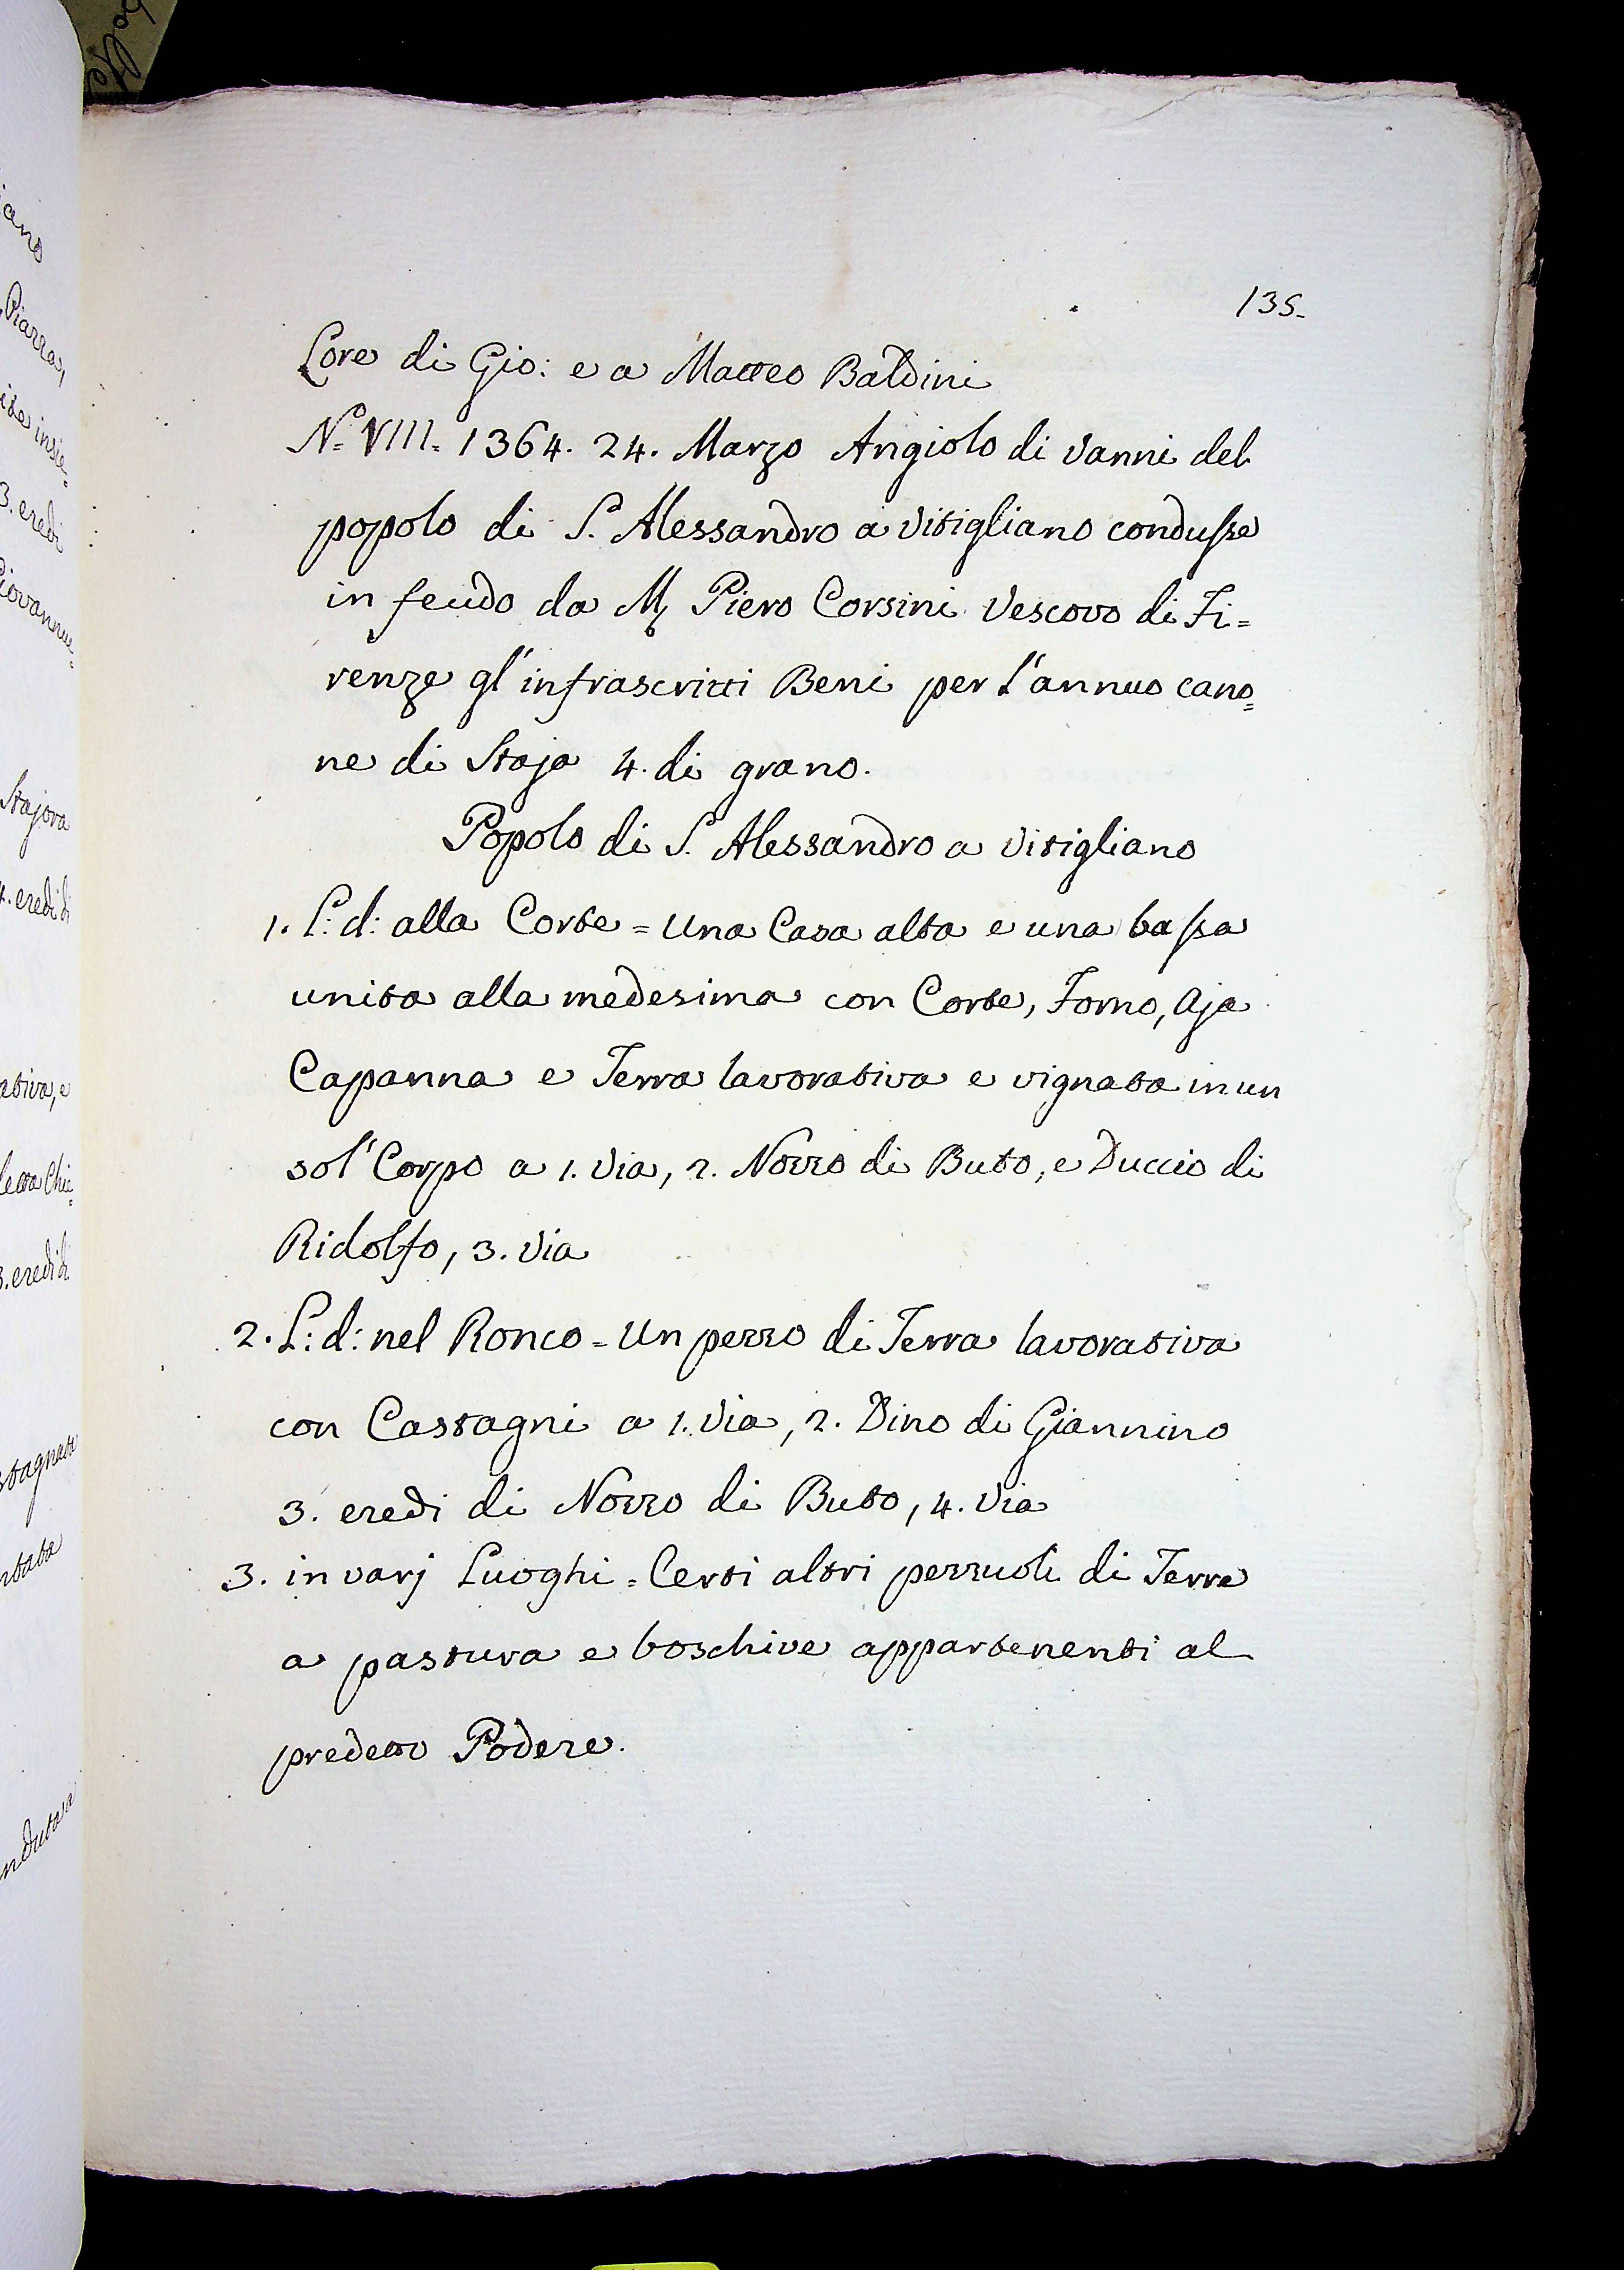 135.
Lore di Gio: e a Matteo Baldini
N.º VIII. 1364. 24. Marzo Angiolo di Vanni del
popolo di S. Alessandro a Vitigliano condusse
in feudo da M. Piero Corsini Vescovo di Fi=
renze gl'infrascritti Beni per l'annuo cano=
ne di Staja 4. di grano.
Popolo di S. Alessandro a Vitigliano
1. L: d: alla Corte = Una Casa alta e una bassa
unita alla medesima con Corte, Forno, Aja
Capanna e Terra lavorativa e vignata in un
sol' Corpo a 1. Via, 2. Nozzo di Buto, e Duccio di
Ridolfo, 3. Via
2. L: d: nel Ronco = Un pezzo di Terra lavorativa
con Castagni a 1. Via, 2. Dino di Giannino
3. eredi di Nozzo di Buto, 4. Via
3. in varj Luoghi = Certi altri pezzuoli di Terre
a pastura e boschive appartenenti al
predetto Podere.
iano
Piazza,
insie=
3. eredi
Giovannu=
Stajora
4. eredi di
ativa, e
detta Chi=
3. eredi di
stagnate